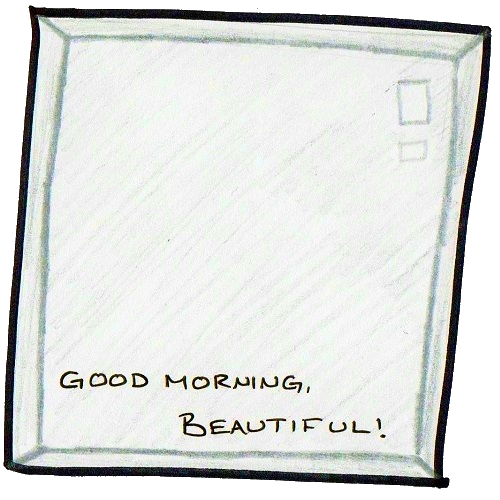 GOOD MORNING,
BEAUTIFUL!